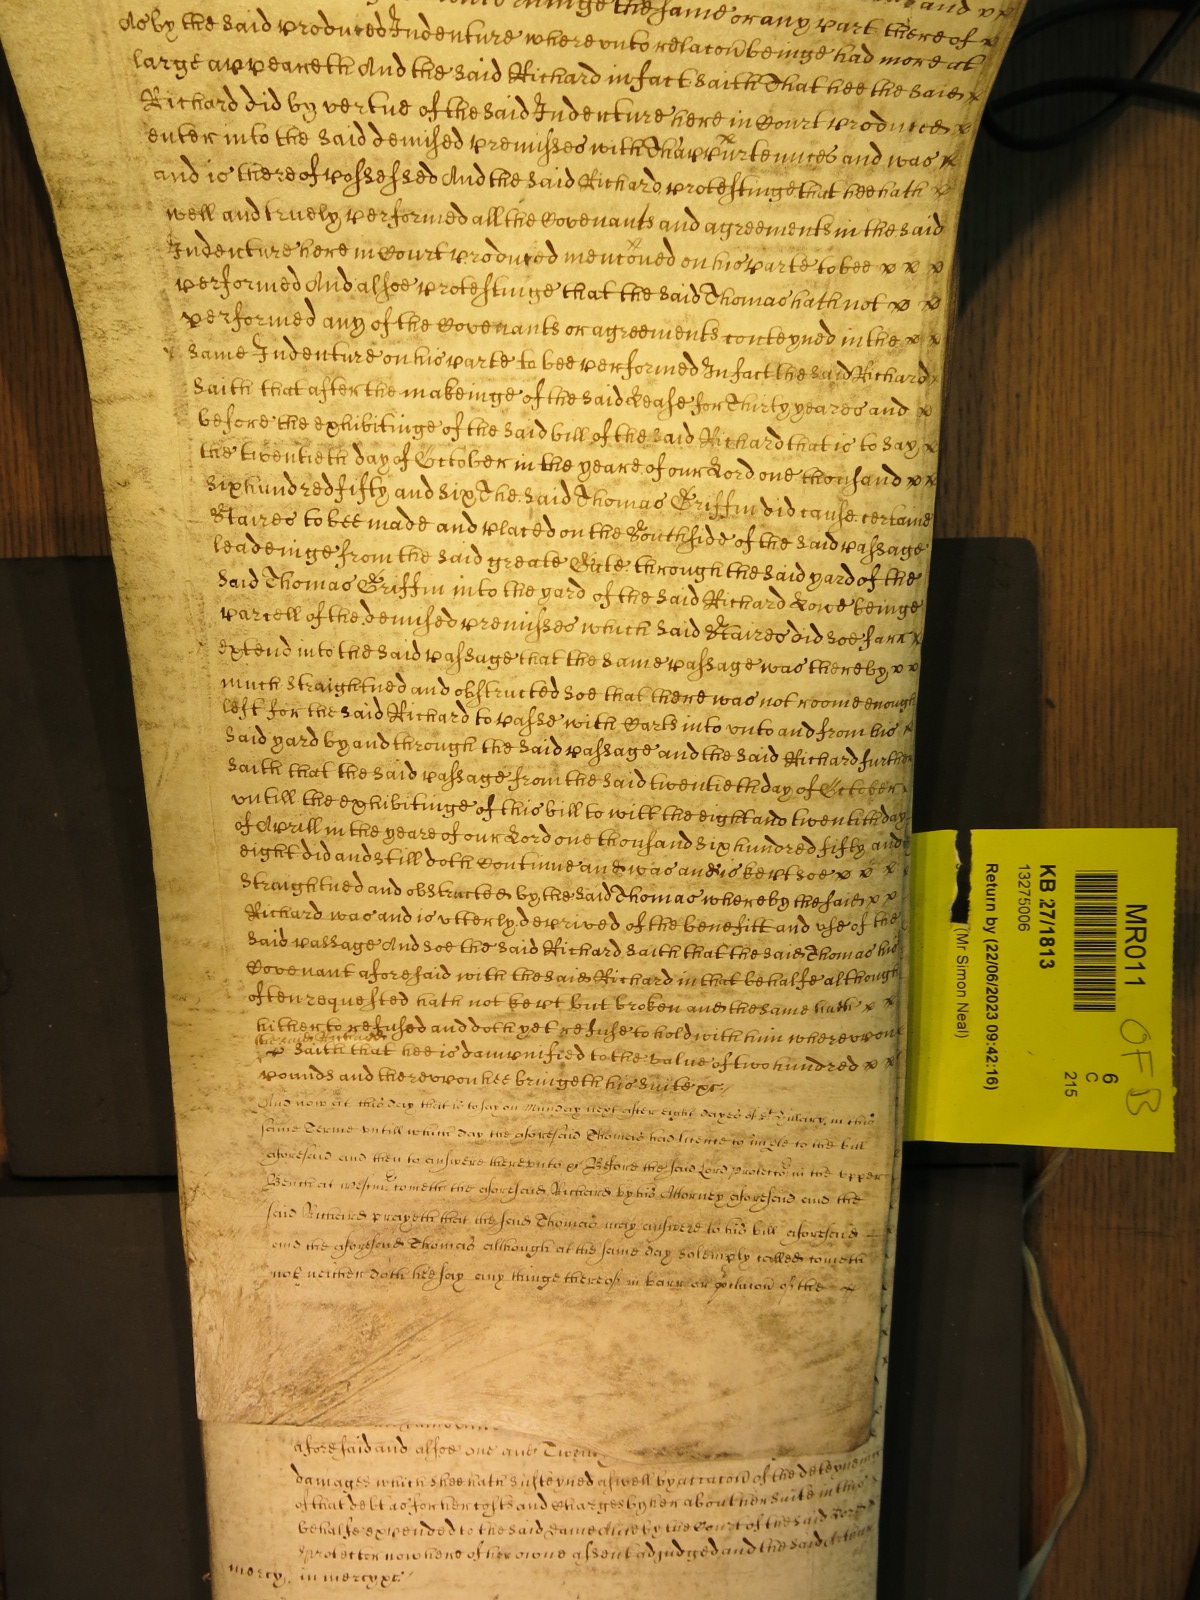 the same or any part there of x
As by the said produced Indenture wherevnto relacõn beinge had more at
large appeareth And the said Richard in fact saith That hee the said x
Richard did by vertue of the said Indenture here in Court produced x
enter into the said demised premisses with Thappurtennces and was x
and is thereof possessed And the said Richard protestinge that hee hath x
well and truely performed all the Covenants and agreements in the said
Indenture here in Court produced mencõned on his parte to bee x x x
performed And alsoe protestinge that the said Thomas hath not x x
performed any of the Covenants or agreements conteyned in the x x
same Indenture on his parte to bee performed In fact the said Richard
saith that after the makeinge of the said Lease for Thirty yeares and x
before the exhibitinge of the said bill of the said Richard that is to say x
the twentieth day of October in the yeare of our Lord one thousand x x
six hundred fifty and six The said Thomas Griffin did cause certaine
Staires to bee made and placed on the Southside of the said passage
leadeinge from the said greate Gate through the said yard of the
said Thomas Griffin into the yard of the said Richard Lowe beinge
parcell of the demised premisses which said Staires did soe farr x
extend into the said passage that the same passage was thereby x x
much straightned and obstructed soe that there was not roome enough
left for the said Richard to passe with Carts into vnto and from his x
said yard by and through the said passage and the said Richard further
saith that the said passage from the said twentieth day of October
vntill the exhibitinge of this bill to witt the eight and twentith day
of Aprill in the yeare of our Lord one thousand six hundred fifty and
eight did and still doth Continue and was and is kept soe x x x x
straightned and obstructed by the said Thomas whereby the said x x
Richard was and is vtterly deprived of the benefitt and vse of the
said passage And soe the said Richard saith that the said Thomas his
Covenant aforesaid with the said Richard in that behalfe although
often requested hath not kept but broken and the same hath x x
hitherto refused and doth yet refuse to hold with him wherevpon
the said Richard
x saith that hee is dampnified to the value of two hundred x x
pounds and therevpon hee bringeth his suite &c
And now at this day that is to say on Munday next after eight dayes of St Hillary in this
same Terme vntill which day the aforesaid Thomas had licence to imple to the bill
aforesaid and then to answere therevnto &c Before the said Lord Protector in the vpper
Bench at Westmr cometh the aforesaid Richard by his Attorney aforesaid and the
said Richard prayeth that the said Thomas may answere to his bill aforesaid
and the aforesaid Thomas although at the same day solemply called cometh
not neither doth hee say any thinge thereof in barr or of the
aforesaid and alsoe one and Twenty
damages which shee hath susteyned aswell by occacõn of the deteyneinge
of that debt as for her costs and Charges by her about her suite in this
behalfe expended to the said by the Court of the said Lord
Protector now here of her owne assent adjudged and the said
mercy in mercy &c
MR011
OFB
6
C
215
KB 27/1813
13275006
Return by (22/06/2023 09:42:16)
(Mr Simon Neal)